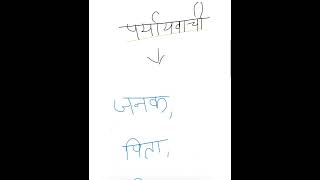 पर्यायवाची
जनक,
पिता,